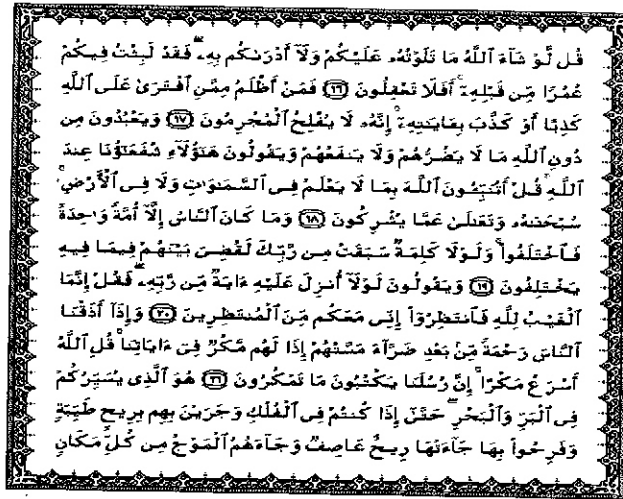 قُل لَّوْ شَآءَ ٱللَّهُ مَا تَلَوْتُهُۥ عَلَيْكُمْ وَلَآ أَدْرَىٰكُم بِهِۦ ۖ فَقَدْ لَبِثْتُ فِيكُمْ
عُمُرًا مِّن قَبْلِهِۦٓ ۚ أَفَلَا تَعْقِلُونَ ۝١٦ فَمَنْ أَظْلَمُ مِمَّنِ ٱفْتَرَىٰ عَلَى ٱللَّهِ
كَذِبًا أَوْ كَذَّبَ بِـَٔايَـٰتِهِۦٓ ۚ إِنَّهُۥ لَا يُفْلِحُ ٱلْمُجْرِمُونَ ۝١٧ وَيَعْبُدُونَ مِن
دُونِ ٱللَّهِ مَا لَا يَضُرُّهُمْ وَلَا يَنفَعُهُمْ وَيَقُولُونَ هَـٰٓؤُلَآءِ شُفَعَـٰٓؤُنَا عِندَ
ٱللَّهِ ۚ قُلْ أَتُنَبِّـُٔونَ ٱللَّهَ بِمَا لَا يَعْلَمُ فِى ٱلسَّمَـٰوَٰتِ وَلَا فِى ٱلْأَرْضِ ۚ
سُبْحَـٰنَهُۥ وَتَعَـٰلَىٰ عَمَّا يُشْرِكُونَ ۝١٨ وَمَا كَانَ ٱلنَّاسُ إِلَّآ أُمَّةً وَٰحِدَةً
فَٱخْتَلَفُوا۟ ۚ وَلَوْلَا كَلِمَةٌ سَبَقَتْ مِن رَّبِّكَ لَقُضِىَ بَيْنَهُمْ فِيمَا فِيهِ
يَخْتَلِفُونَ ۝١٩ وَيَقُولُونَ لَوْلَآ أُنزِلَ عَلَيْهِ ءَايَةٌ مِّن رَّبِّهِۦ ۖ فَقُلْ إِنَّمَا
ٱلْغَيْبُ لِلَّهِ فَٱنتَظِرُوٓا۟ إِنِّى مَعَكُم مِّنَ ٱلْمُنتَظِرِينَ ۝٢٠ وَإِذَآ أَذَقْنَا
ٱلنَّاسَ رَحْمَةً مِّنۢ بَعْدِ ضَرَّآءَ مَسَّتْهُمْ إِذَا لَهُم مَّكْرٌ فِىٓ ءَايَاتِنَا ۚ قُلِ ٱللَّهُ
أَسْرَعُ مَكْرًا ۚ إِنَّ رُسُلَنَا يَكْتُبُونَ مَا تَمْكُرُونَ ۝٢١ هُوَ ٱلَّذِى يُسَيِّرُكُمْ
فِى ٱلْبَرِّ وَٱلْبَحْرِ ۖ حَتَّىٰٓ إِذَا كُنتُمْ فِى ٱلْفُلْكِ وَجَرَيْنَ بِهِم بِرِيحٍ طَيِّبَةٍ
وَفَرِحُوا۟ بِهَا جَآءَتْهَا رِيحٌ عَاصِفٌ وَجَآءَهُمُ ٱلْمَوْجُ مِن كُلِّ مَكَانٍ